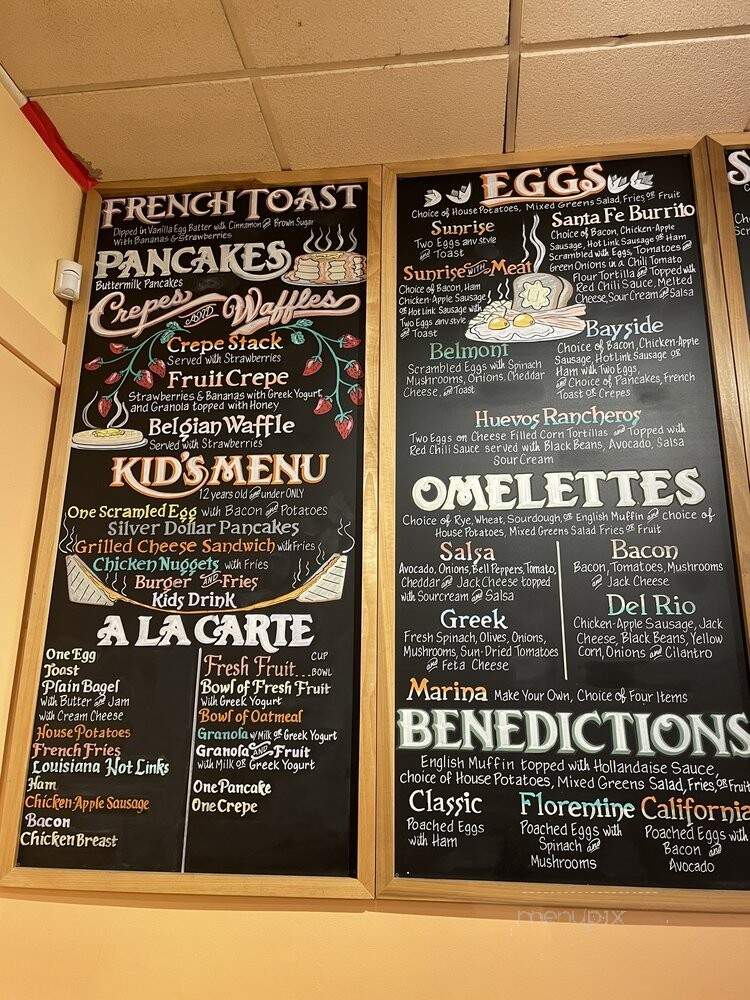 FRENCH TOAST
Dipped in Vanilla Egg Batter with Cinnamon and Brown Sugar
With Bananas & Strawberries
PANCAKES
Buttermilk Pancakes
Crepes AND Waffles
Crepe Stack
Served with Strawberries
Fruit Crepe
Strawberries & Bananas with Greek Yogurt
and Granola topped with Honey
Belgian Waffle
Served with Strawberries
KID'S MENU
12 years old and under ONLY
One Scramled Egg with Bacon and Potatoes
Silver Dollar Pancakes
Grilled Cheese Sandwich with Fries
Chicken Nuggets with Fries
Burger AND Fries
Kids Drink
A LA CARTE
One Egg
Toast
Plain Bagel
with Butter and Jam
with Cream Cheese
House Potatoes
French Fries
Louisiana Hot Links
Ham
Chicken-Apple Sausage
Bacon
Chicken Breast
Fresh Fruit... CUP
BOWL
Bowl of Fresh Fruit
with Greek Yogurt
Bowl of Oatmeal
Granola w/Milk or Greek Yogurt
Granola AND Fruit
with Milk or Greek Yogurt
One Pancake
One Crepe
EGGS
Choice of House Potatoes, Mixed Greens Salad, Fries or Fruit
Sunrise
Two Eggs any style
and Toast
Sunrise WITH Meat
Choice of Bacon, Ham
Chicken-Apple Sausage
or Hot Link Sausage with
Two Eggs any style
and Toast
Belmont
Scrambled Eggs with Spinach
Mushrooms, Onions, Cheddar
Cheese, and Toast
Santa Fe Burrito
Choice of Bacon, Chicken-Apple
Sausage, Hot Link Sausage or Ham
Scrambled with Eggs, Tomatoes and
Green Onions in a Chili Tomato
Flour Tortilla and Topped with
Red Chili Sauce, Melted
Cheese, Sour Cream and Salsa
Bayside
Choice of Bacon, Chicken-Apple
Sausage, Hot Link Sausage or
Ham with Two Eggs,
and Choice of Pancakes, French
Toast or Crepes
Huevos Rancheros
Two Eggs on Cheese Filled Corn Tortillas and Topped with
Red Chili Sauce served with Black Beans, Avocado, Salsa
Sour Cream
OMELETTES
Choice of Rye, Wheat, Sourdough, or English Muffin and choice of
House Potatoes, Mixed Greens Salad Fries or Fruit
Salsa
Avocado, Onions, Bell Peppers, Tomato,
Cheddar and Jack Cheese topped
with Sourcream and Salsa
Greek
Fresh Spinach, Olives, Onions,
Mushrooms, Sun-Dried Tomatoes
and Feta Cheese
Bacon
Bacon, Tomatoes, Mushrooms
and Jack Cheese
Del Rio
Chicken-Apple Sausage, Jack
Cheese, Black Beans, Yellow
Corn, Onions and Cilantro
Marina Make Your Own, Choice of Four Items
BENEDICTIONS
English Muffin topped with Hollandaise Sauce,
choice of House Potatoes, Mixed Greens Salad, Fries, or Fruit
Classic
Poached Eggs
with Ham
Florentine
Poached Eggs with
Spinach and
Mushrooms
California
Poached Eggs with
Bacon and
Avocado
menupix